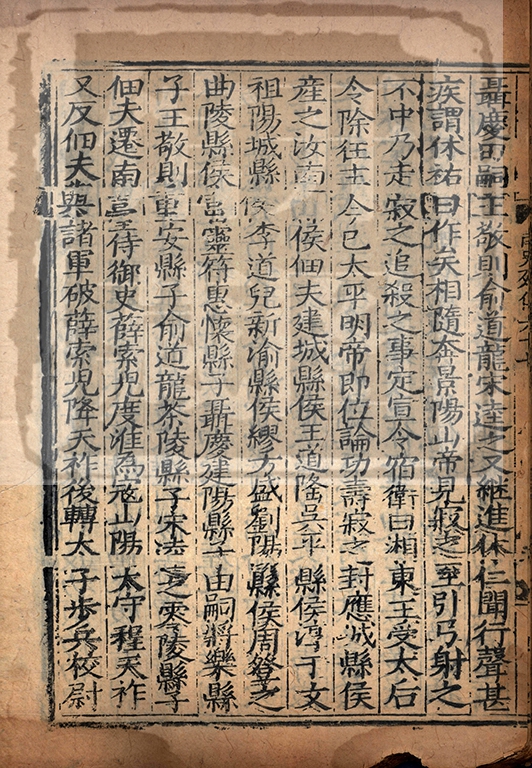 聶慶田嗣王敬則俞道龍宋逵之又繼進休仁聞行聲甚
疾謂休祐曰作矣相隨奔景陽山帝見寂之至引弓射之
不中乃走寂之追殺之事定宣令宿衛曰湘東王受太后
令除狂主今已太平明帝即位論功壽寂之封應城縣侯
産之汝南侯佃夫建城縣侯王道隆吳平縣侯淳于文
祖陽城縣侯李道兒新渝縣侯繆方盛劉陽縣侯周登之
曲陵縣侯富靈符惠懷縣子聶慶建陽縣子田嗣將樂縣
子王敬則重安縣子俞道龍茶陵縣子宋逵之零陵縣子
佃夫遷南臺侍御史薛索兒度淮爲寇山陽太守程天祚
又反佃夫與諸軍破薛索兒降天祚後轉太子步兵校尉